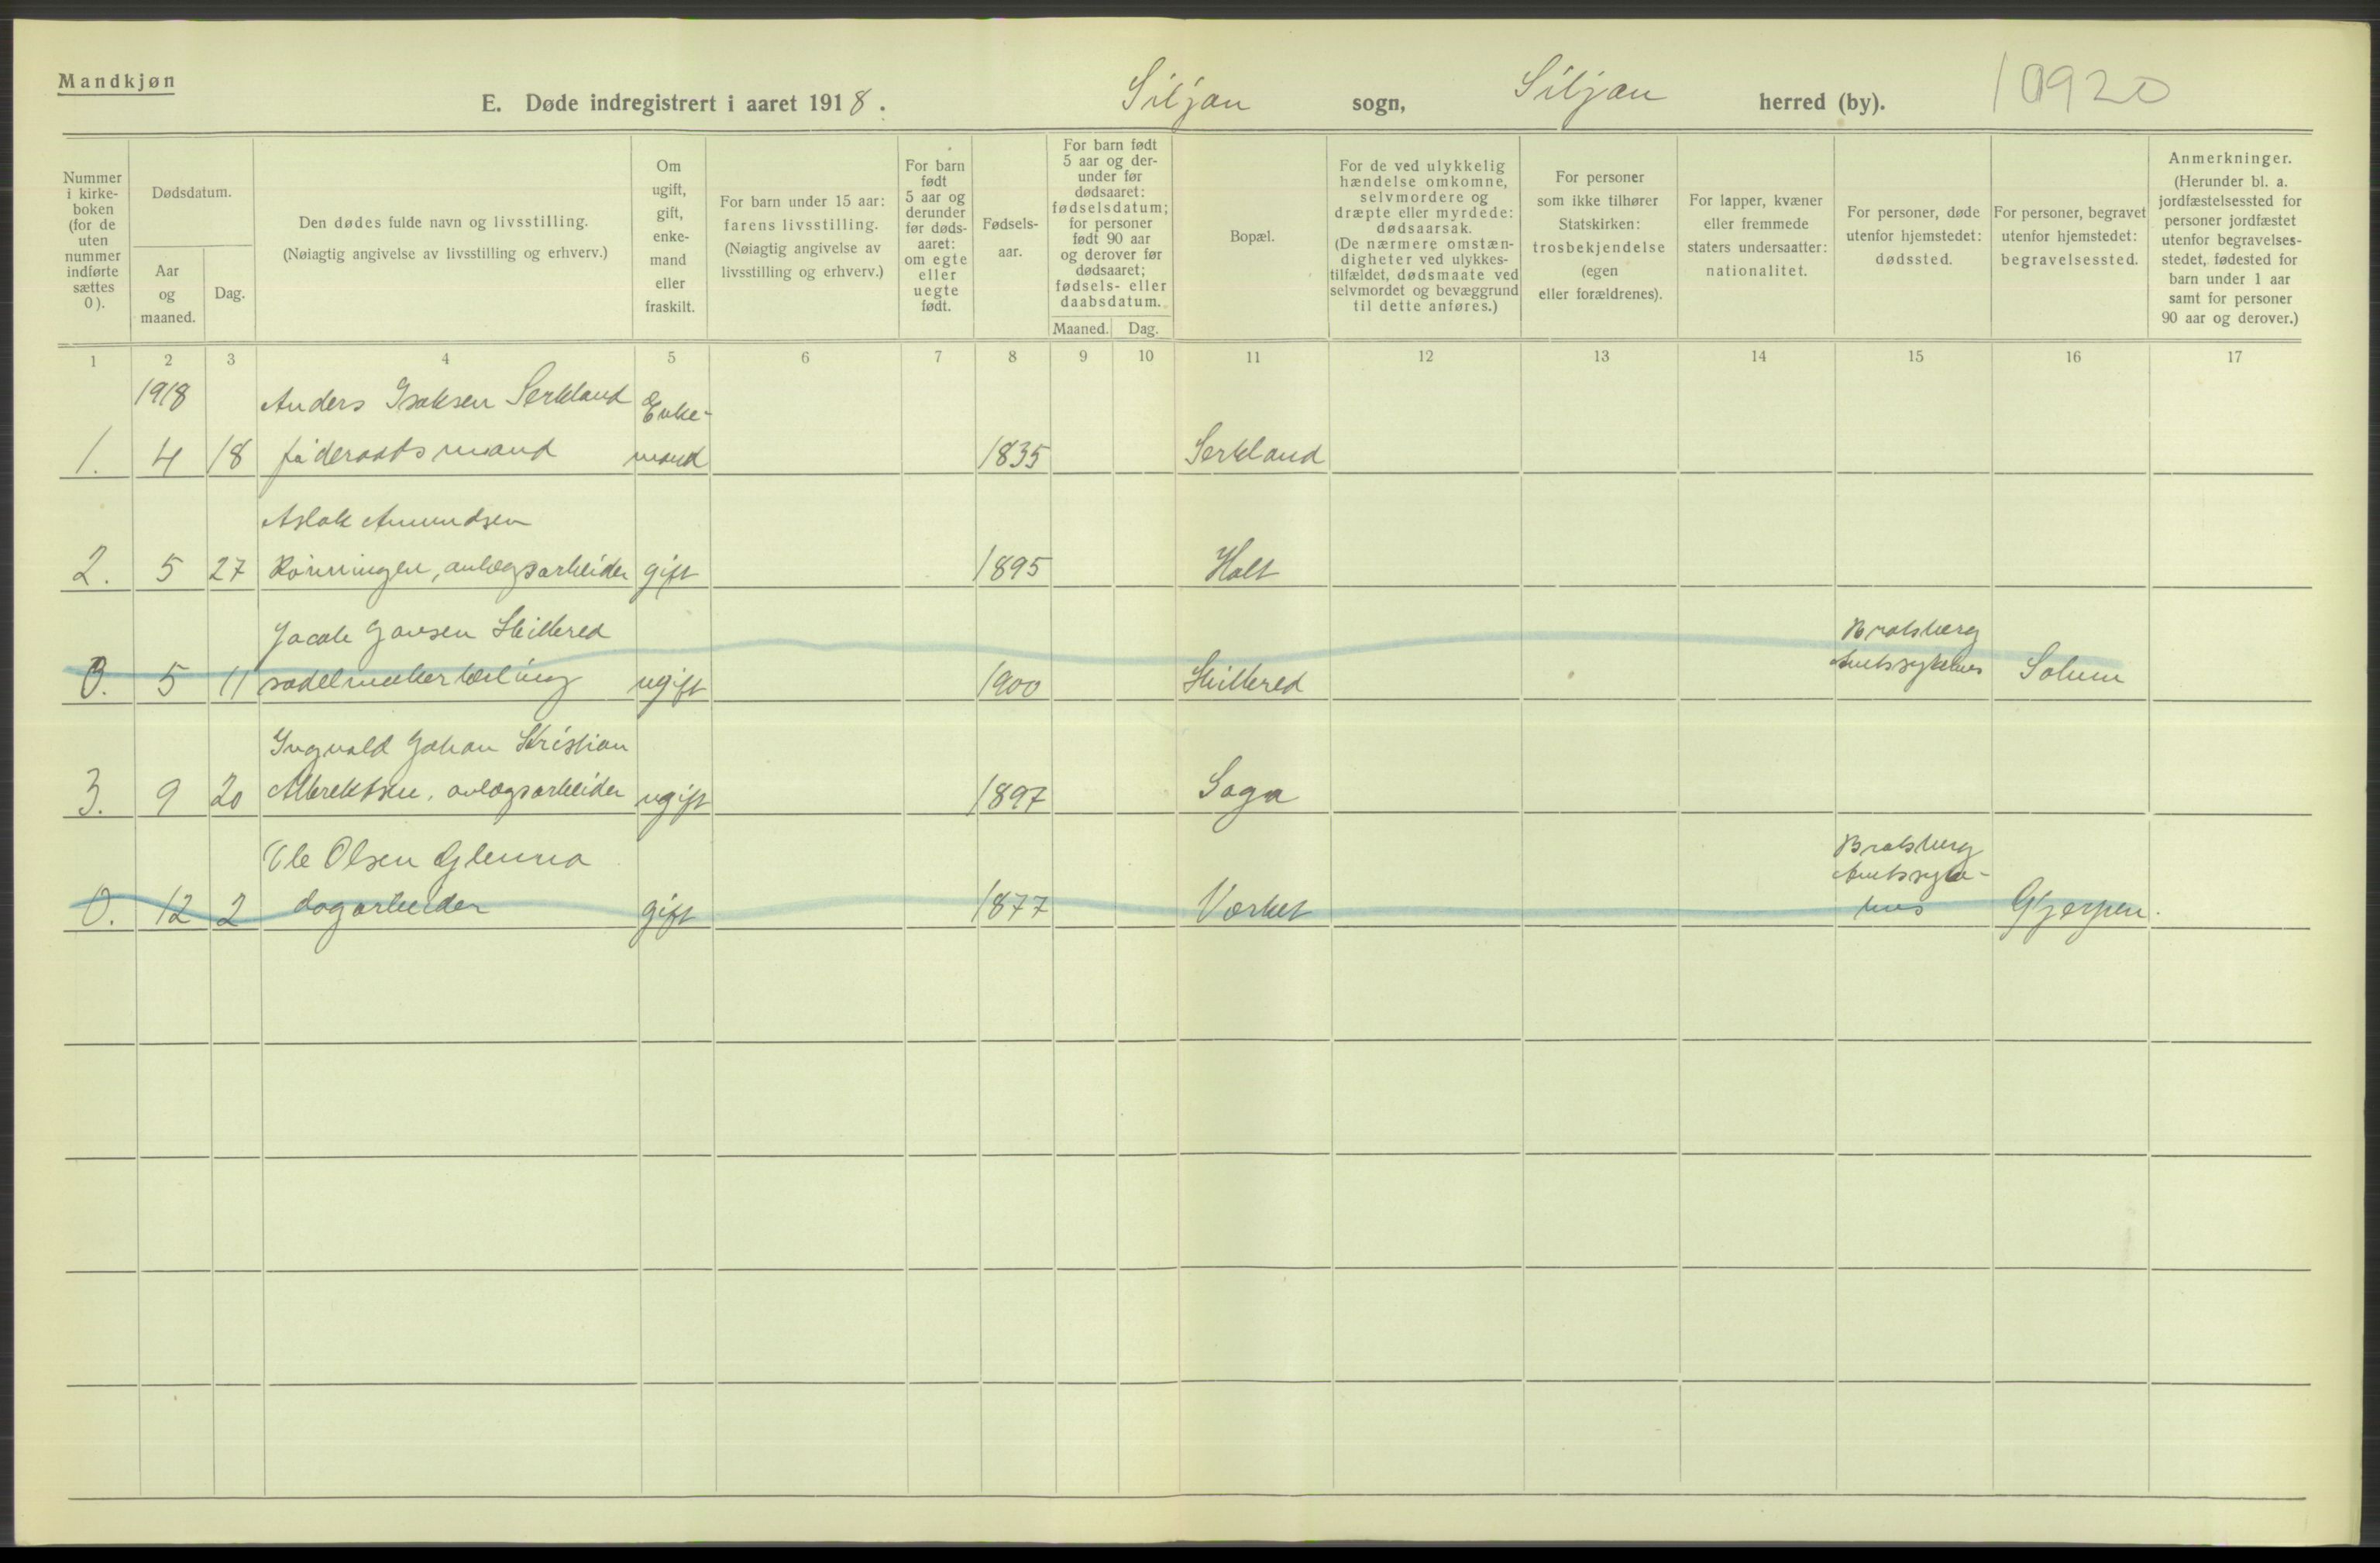 Mandkjøn
E. Døde indregistrert i aaret 1918. Siljan sogn, Siljan herred (by). 10920
Nummer i kirke-boken (for de uten nummer indførte sættes 0).
Dødsdatum.
Aar og maaned.
Dag.
Den dødes fulde navn og livsstilling.
(Nøiagtig angivelse av livsstilling og erhverv.)
Om ugift, gift, enke-mand eller fraskilt.
For barn under 15 aar: farens livsstilling. (Nøiagtig angivelse av livsstilling og erhverv.)
For barn født 5 aar og derunder før døds-aaret: om egte eller uegte født.
Fødsels-aar.
For barn født 5 aar og der-under før dødsaaret: fødselsdatum; for personer født 90 aar og derover før dødsaaret; fødsels- eller daabsdatum.
Maaned. Dag.
Bopæl.
For de ved ulykkelig hændelse omkomne, selvmordere og dræpte eller myrdede: dødsaarsak. (De nærmere omstæn-digheter ved ulykkes-tilfældet, dødsmaate ved selvmordet og bevæggrund til dette anføres.)
For personer som ikke tilhører Statskirken: trosbekjendelse (egen eller forældrenes).
For lapper, kvæner eller fremmede staters undersaatter: nationalitet.
For personer, døde utenfor hjemstedet: dødssted.
For personer, begravet utenfor hjemstedet: begravelsessted.
Anmerkninger. (Herunder bl. a. jordfæstelsessted for personer jordfæstet utenfor begravelses-stedet, fødested for barn under 1 aar samt for personer 90 aar og derover.)
1 2 3 4 5 6 7 8 9 10 11 12 13 14 15 16 17
1918 Anders Isaksen Serkland Enke-
1. 4 18 føderaadsmand mand 1835 Serkland
Aslak Amundsen
2. 5 27 Rønningen, anlægsarbeider gift 1895 Holt
Jacob Jansen Skilbred Bratsberg
0. 5 11 sadelmakerlærling ugift 1900 Skilbred Amtssykehus Solum
Ingvald Johan Kristian
3. 9 20 Albrektsen, anlægsarbeider ugift 1897 Saga
Ole Olsen Glenna Bratsberg
Amtssyke-
0. 12 2 dagarbeider gift 1877 Værket hus Gjerpen.